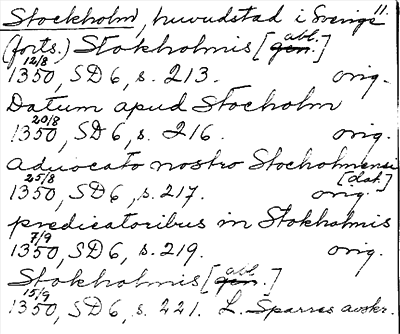 Stockholm, huvudstad i Sverige 11.
(forts.) Stokholmis [gen. abl.]
12/8
1350, SD 6, s. 213. orig.
Datum apud Stocholm
20/8
1350, SD 6, s. 216. orig.
aduocato nostro Stocholmensi
25/8 [dat.]
1350, SD 6, s. 217. orig.
predicatoribus in Stokholmis
7/9
1350, SD 6, s. 219. orig.
Stokholmis [gen. abl.]
15/9
1350, SD 6, s. 221. L. Sparres avskr.